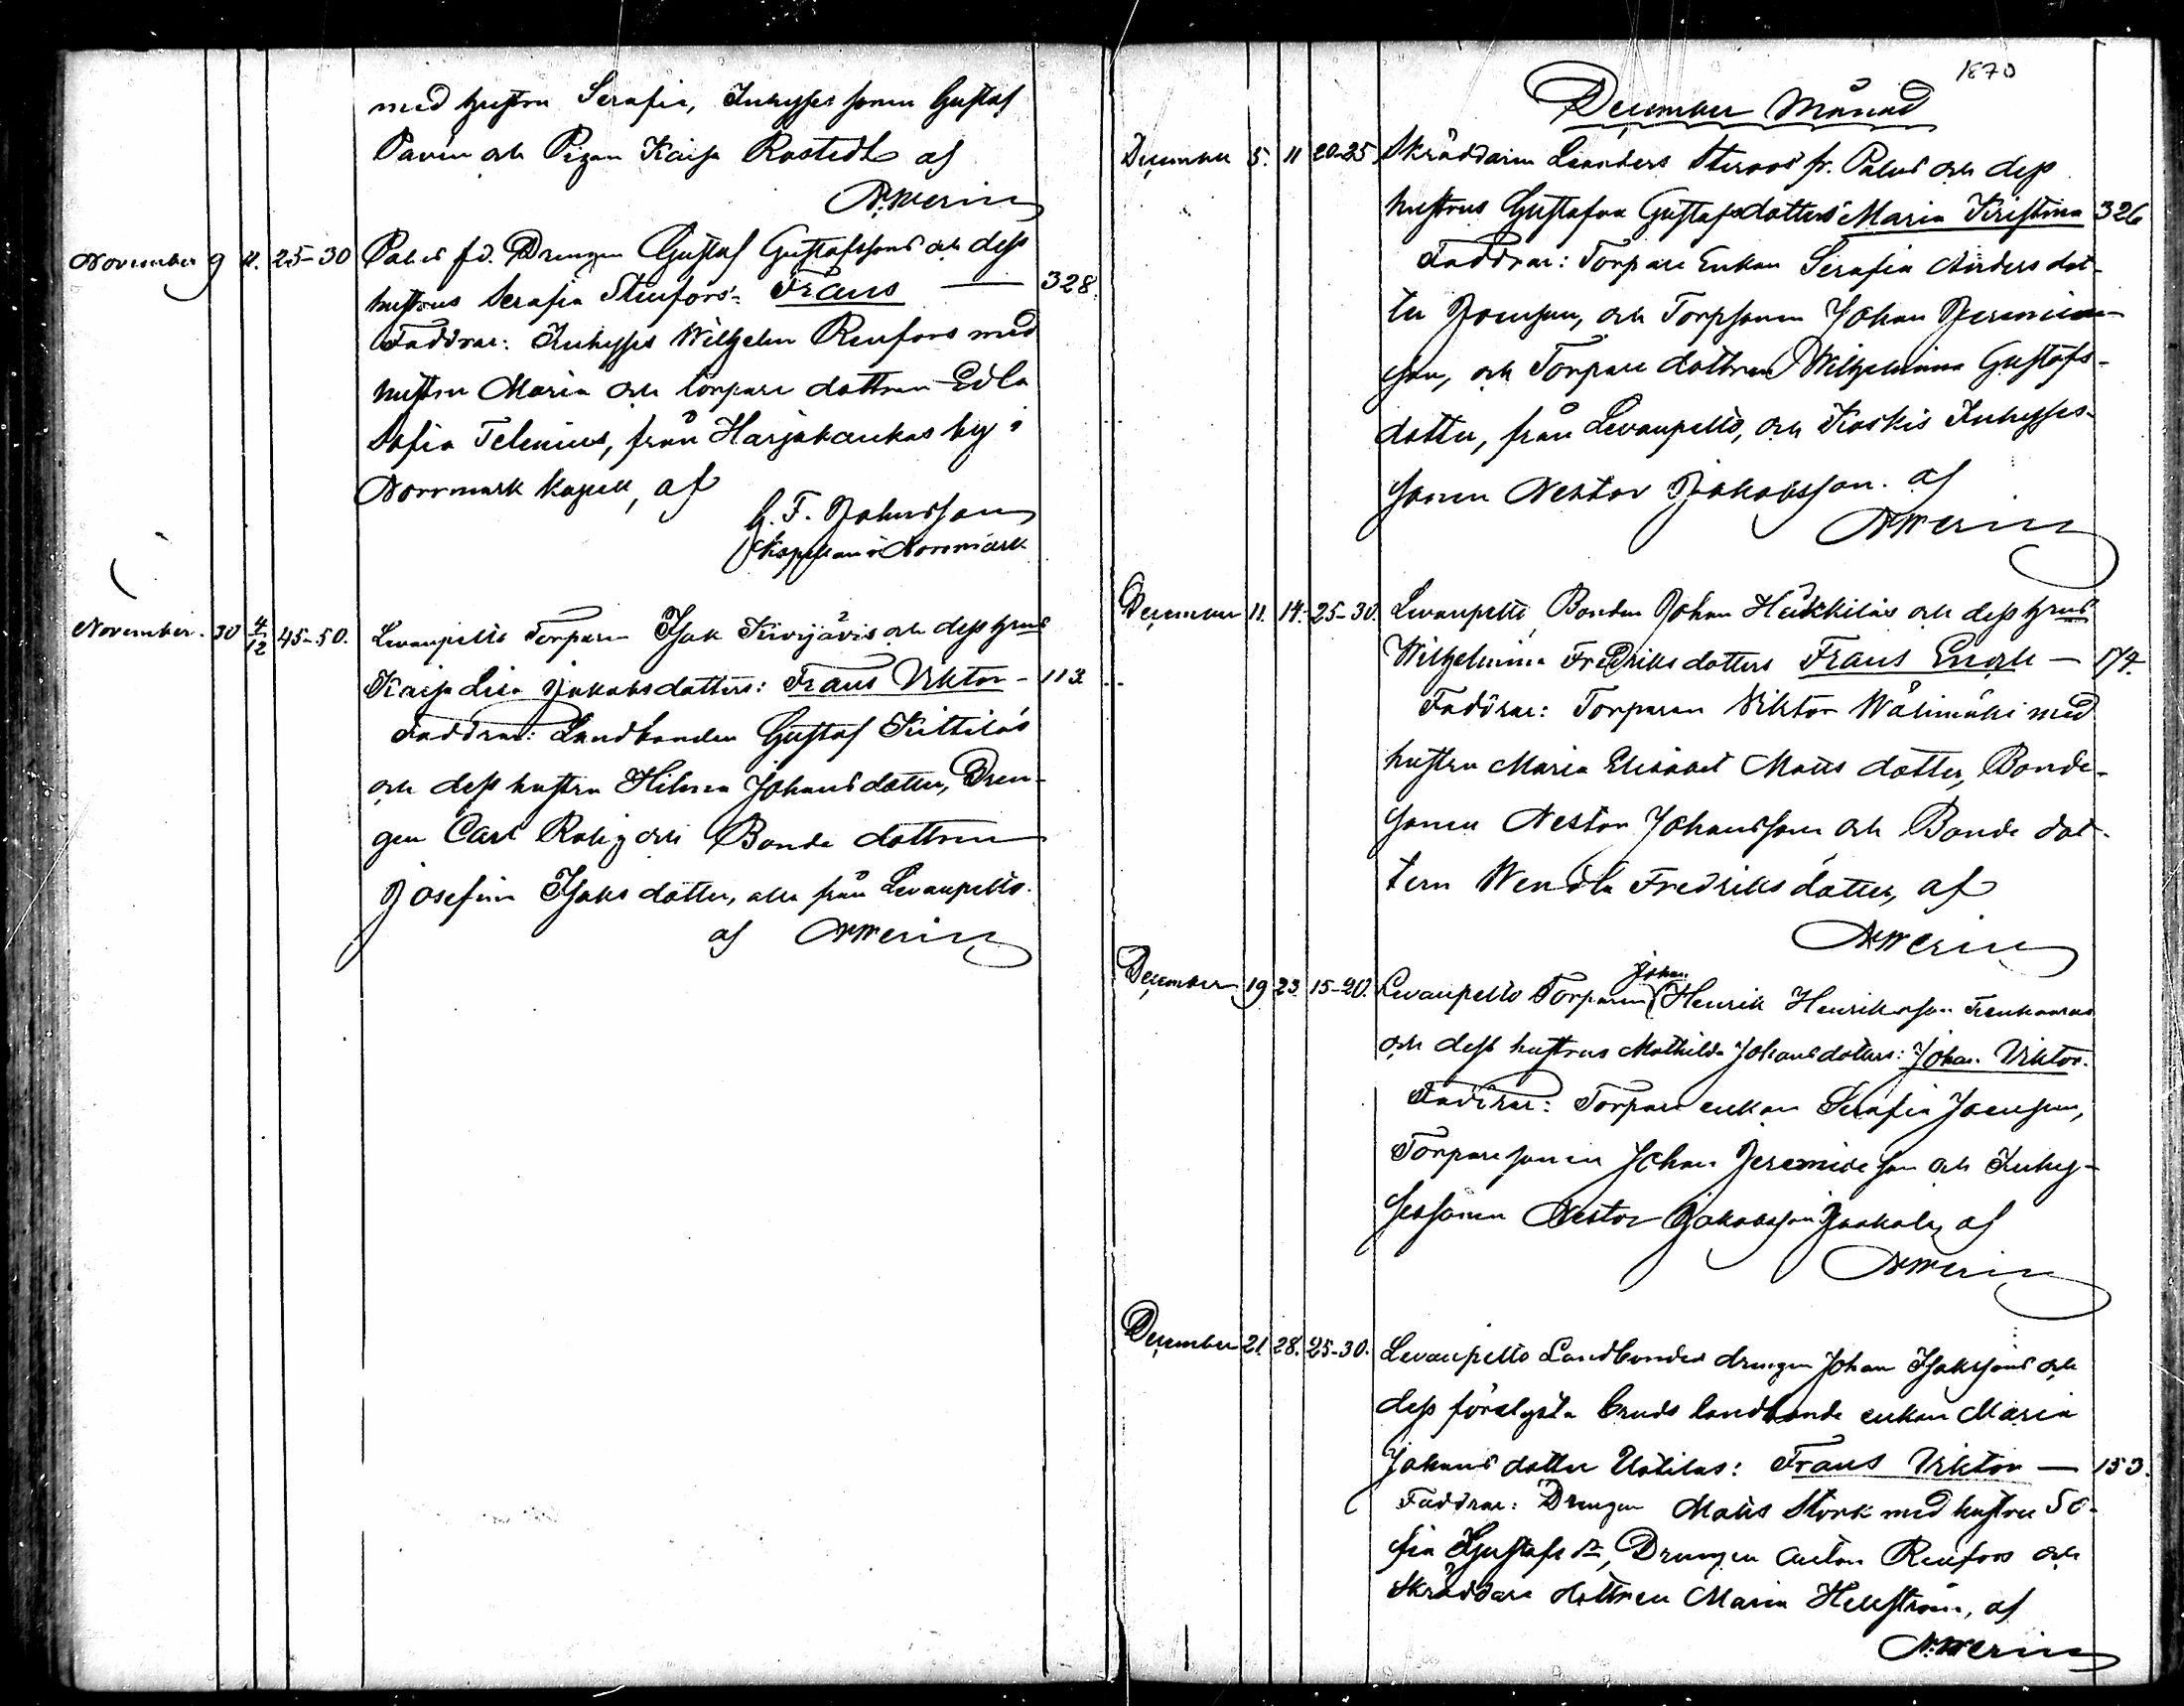 med hustru Serafia, Inhyses sonen Gustaf
Pavén och Pigan Kaisa Rostedt af
A. Werin
November 9 11. 25-30 Palus fd. Drengen Gustaf Gustafssons och dess
hustrus Serafia Stenfors: Frans — 328.
Faddrar: Inhyses Wilhelm Renfors med
hustru Maria och torpare dottren Edla
Sofia Telenius, från Harjakankas by i
Norrmark kapell, af
G. F. Johnsson
Kapellan i Norrmark
November. 30 4/12 45-50. Levanpelto Torparen Isak Kivijärvis och dess hrus
Kaisa Lisa Jakobsdotters: Frans Viktor - 113
Faddrar: Landbonden Gustaf Kittilás
och dess hustru Hilma Johansdotter, Dren-
gen Carl Rohg och Bonde dottren
Josefina Isaks dotter, alla från Levanpelto.
af A Werin
1870
December Månad
December 5. 11 20-25 Skräddaren Leanders Steroos fr. Palus och dess
hustrus Gustafva Gustafsdotters Maria Kristina 326
Faddrar: Torpare Enkan Serafia Andersdot-
ter Joensuu, och Torpsonen Johan Jeremias-
son, och Torpare dottren Wilhelmina Gustafs-
dotter, från Levanpelto, och Koskis Inhyses-
sonen Nestor Jakobsson. af
A Werin
December 11. 14. 25-30. Levanpelto Bonden Johan Heikkiläs och dess hrus
Wilhelmina Fredriksdotters Frans Enok — 174.
Faddrar: Torparen Viktor Wälimäki med
hustru Maria Elisabet Matts dotter, Bonde-
sonen Nestor Johansson och Bonde dot-
tern Wendla Fredriksdotter, af
A Werin
December 19 23. 15-20. Levanpelto Torparen Johan Henrik Henriksson
och dess hustrus Mathilda Johansdotters: Johan Viktor.
Faddrar: Torpare enkan Serafia Joensuu,
Torparesonen Johan Jeremiasson och Inhy-
sessonen Nestor Jakobsson Jaakola, af
A Werin
December 21. 28. 25-30. Levanpelto Landbondes drengen Johan Isakssons och
dess förelysta bruds landbonde enkan Maria
Johans dotter Uotilas: Frans Viktor — 153.
Faddrar: Drengen Matts Stork med hustru So-
fia Gustafs dr, Drengen Anton Renfors och
Skräddare dottren Maria Hellström, af
A. Werin